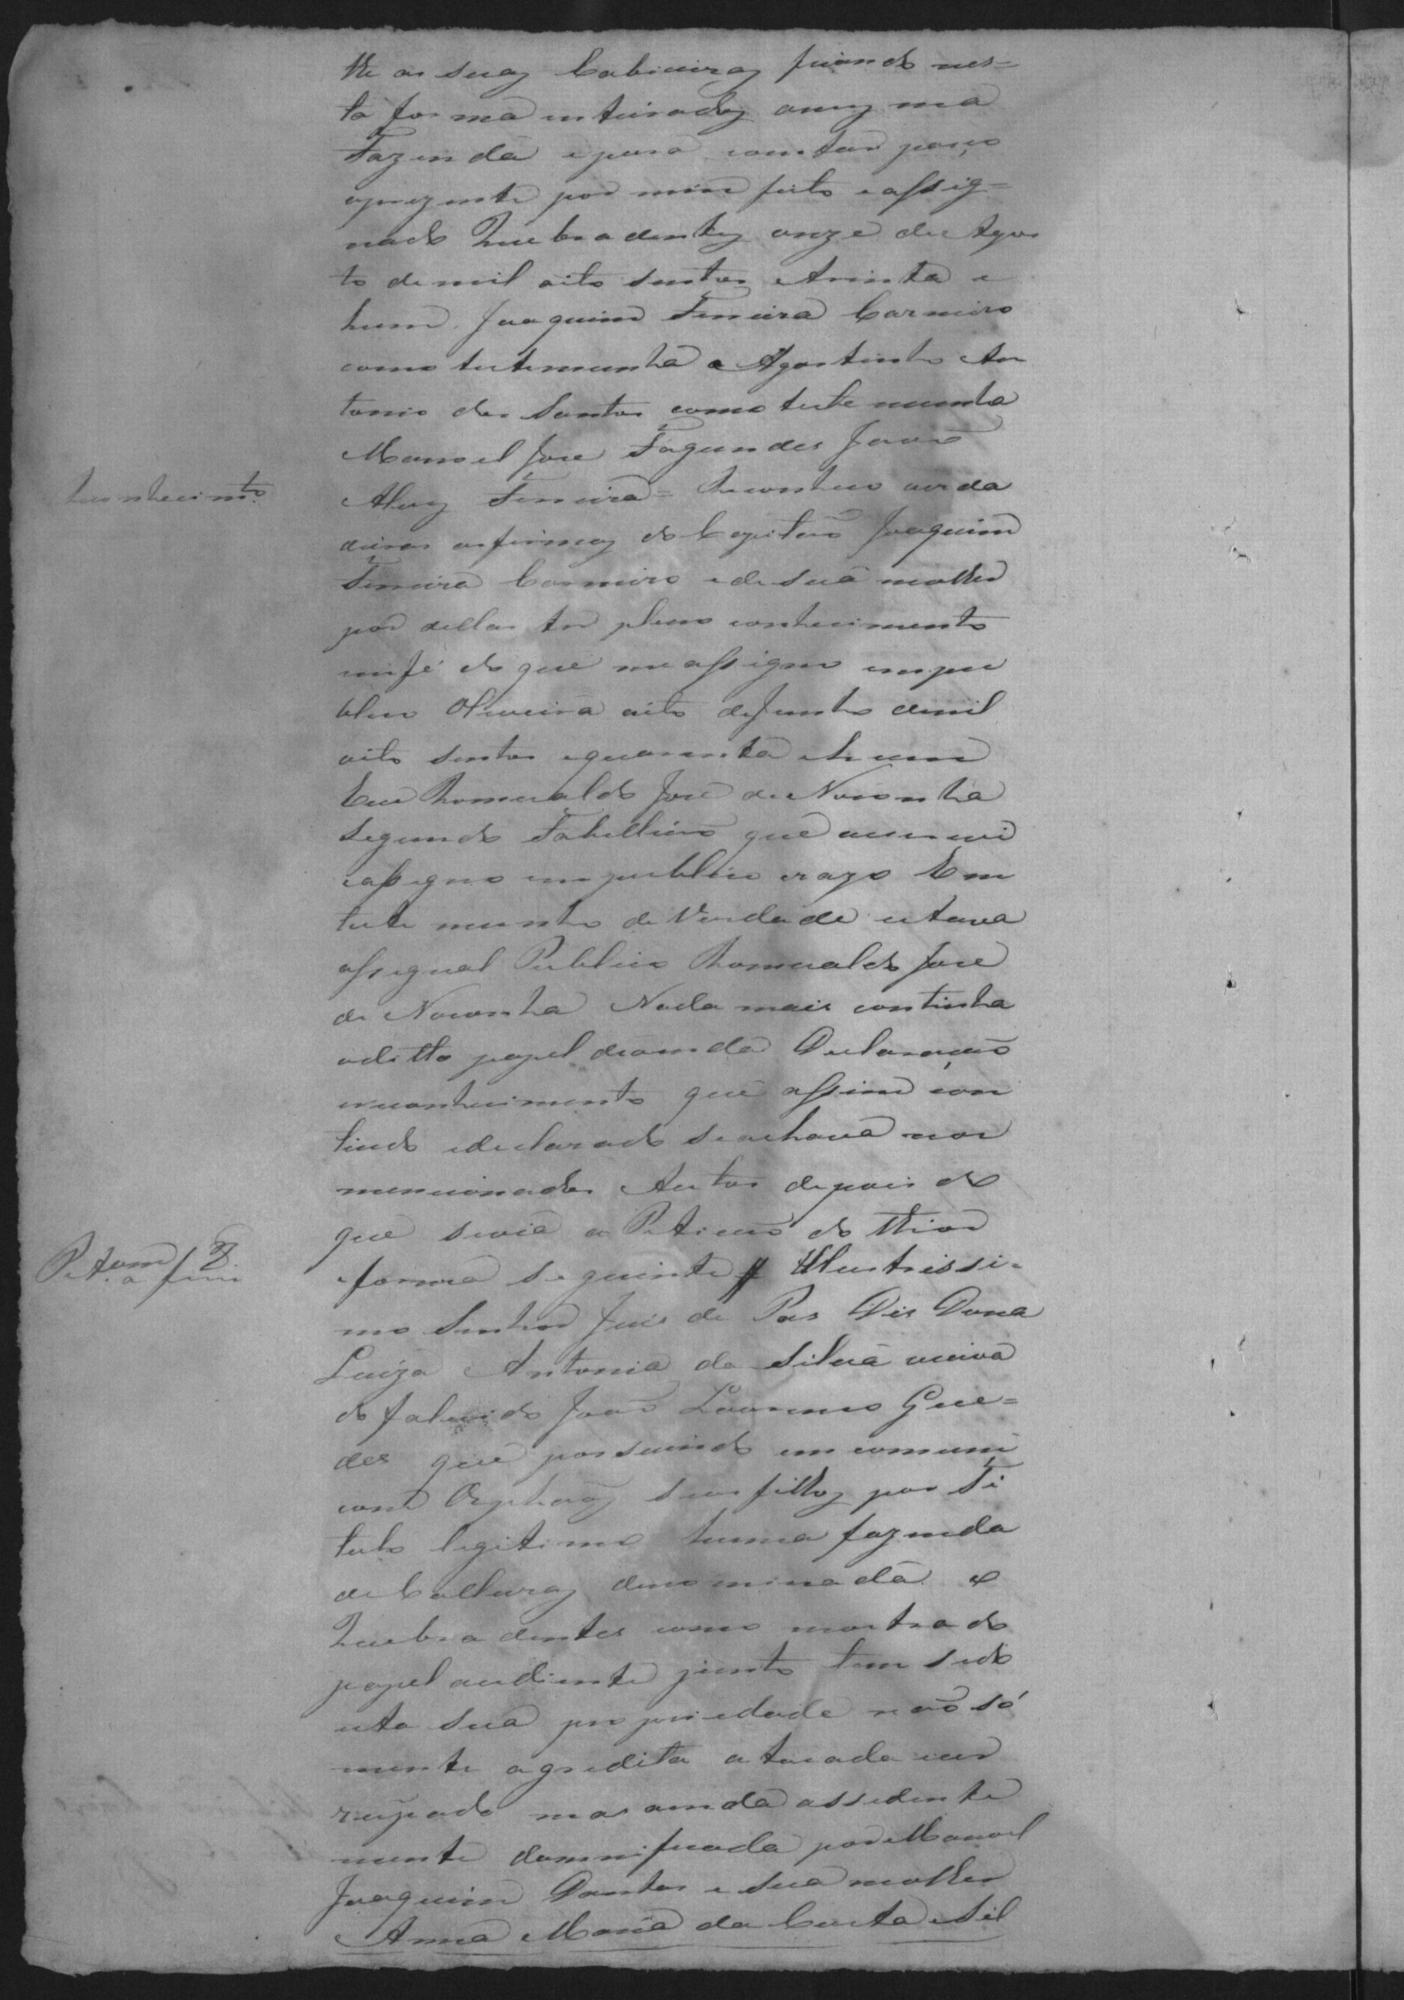 the as suas Cabiceiras ficando nes=
ta forma inteirados a mesma
Fazenda e para constar passo
aprezente por mim feito e assig=
nado Quebradentes onze de Agos
to de mil oito sentos e trinta e
hum. Joaquim Ferreira Carneiro
como testemunha e Agostinho An
tonio dos Santos como teste munha
Manoel Jose Fagundes João
Alves Ferreira = Reconheco verda
deiras as firmas do Capitão Joaquim
Ferreira Carneiro e de sua molher
por dellas ter pleno conhecimento
em fé do que me assigno em pu
blico Oliveira oito de Junho de mil
oito sentos e quarenta e hum
Eu Romualdo José de Noronha
Segundo Tabellião que escrevi
e assigno em publico e razo Em
teste munho de Verdade estava
o signal Publico Romualdo Jose
de Noronha Nada mais continha
o ditto papel de venda Declaração
e reconhecimento que assim con
tiudo e declarado se achava nos
mencionados Autos depois do
que se via a Peticão do thior
e forma seguinte // Illustrissi=
mo Senhor Juis de Pas Dis Dona
Luiza Antonia da Silva viuva
do falecido João Lourenco Gue=
des que possuindo em comum
com Orphãos seus filhos por Ti
tulo legitimo huma fazenda
de Culturas denominada o
Quebra dentes como mostra do
papel audiente junto tem sido
esta sua propriedade não só
mente agredita atacada e us
rupado mas ainda assedente
mente damnificada por Manoel
Joaquim Dantas e sua molher
Anna Maria da Costa e Sil
Reconhecimto.
Petam f 8
a fim